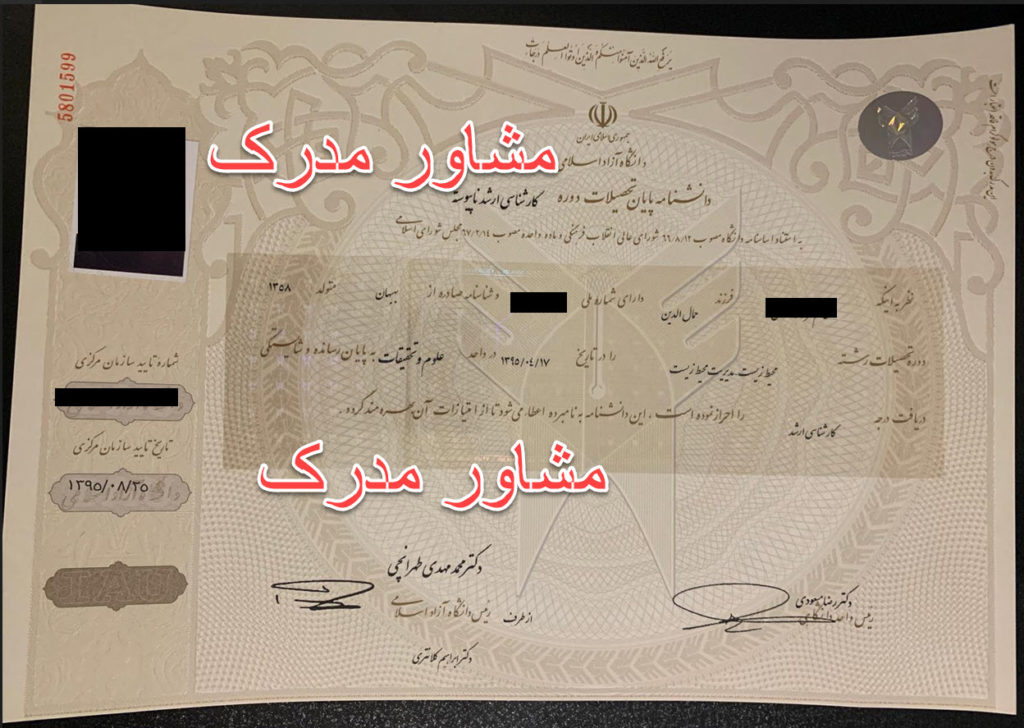 یرفع الله الذین آمنوا منکم و الذین اوتوا العلم درجات
5801599
جمهوری اسلامی ایران
دانشگاه آزاد اسلامی
مشاور مدرک
دانشنامه پایان تحصیلات دوره کارشناسی ارشد ناپیوسته
به استناد اساسنامه دانشگاه مصوب ۶۶/۸/۱۲ شورای عالی انقلاب فرهنگی و ماده واحده مصوب ۶۷/۲/۱۴ مجلس شورای اسلامی
نظر به اینکه فرزند جمال الدین دارای شماره ملی و شناسنامه صادره از بهبهان متولد ۱۳۵۸
دوره تحصیلات رشته محیط زیست مدیریت محیط زیست را در تاریخ ۱۳۹۵/۰۴/۱۷ در واحد علوم و تحقیقات به پایان رسانده و شایستگی
دریافت درجه کارشناسی ارشد را احراز نموده است ، این دانشنامه به نامبرده اعطا می شود تا از امتیازات آن بهره مند گردد .
مشاور مدرک
شماره تایید سازمان مرکزی
تاریخ تایید سازمان مرکزی
۱۳۹۵/۰۸/۲۵
دکتر محمد مهدی طهرانچی
رئیس دانشگاه آزاد اسلامی
از طرف
دکتر ابراهیم کلانتری
دکتر رضا مسعودی
رئیس واحد دانشگاهی